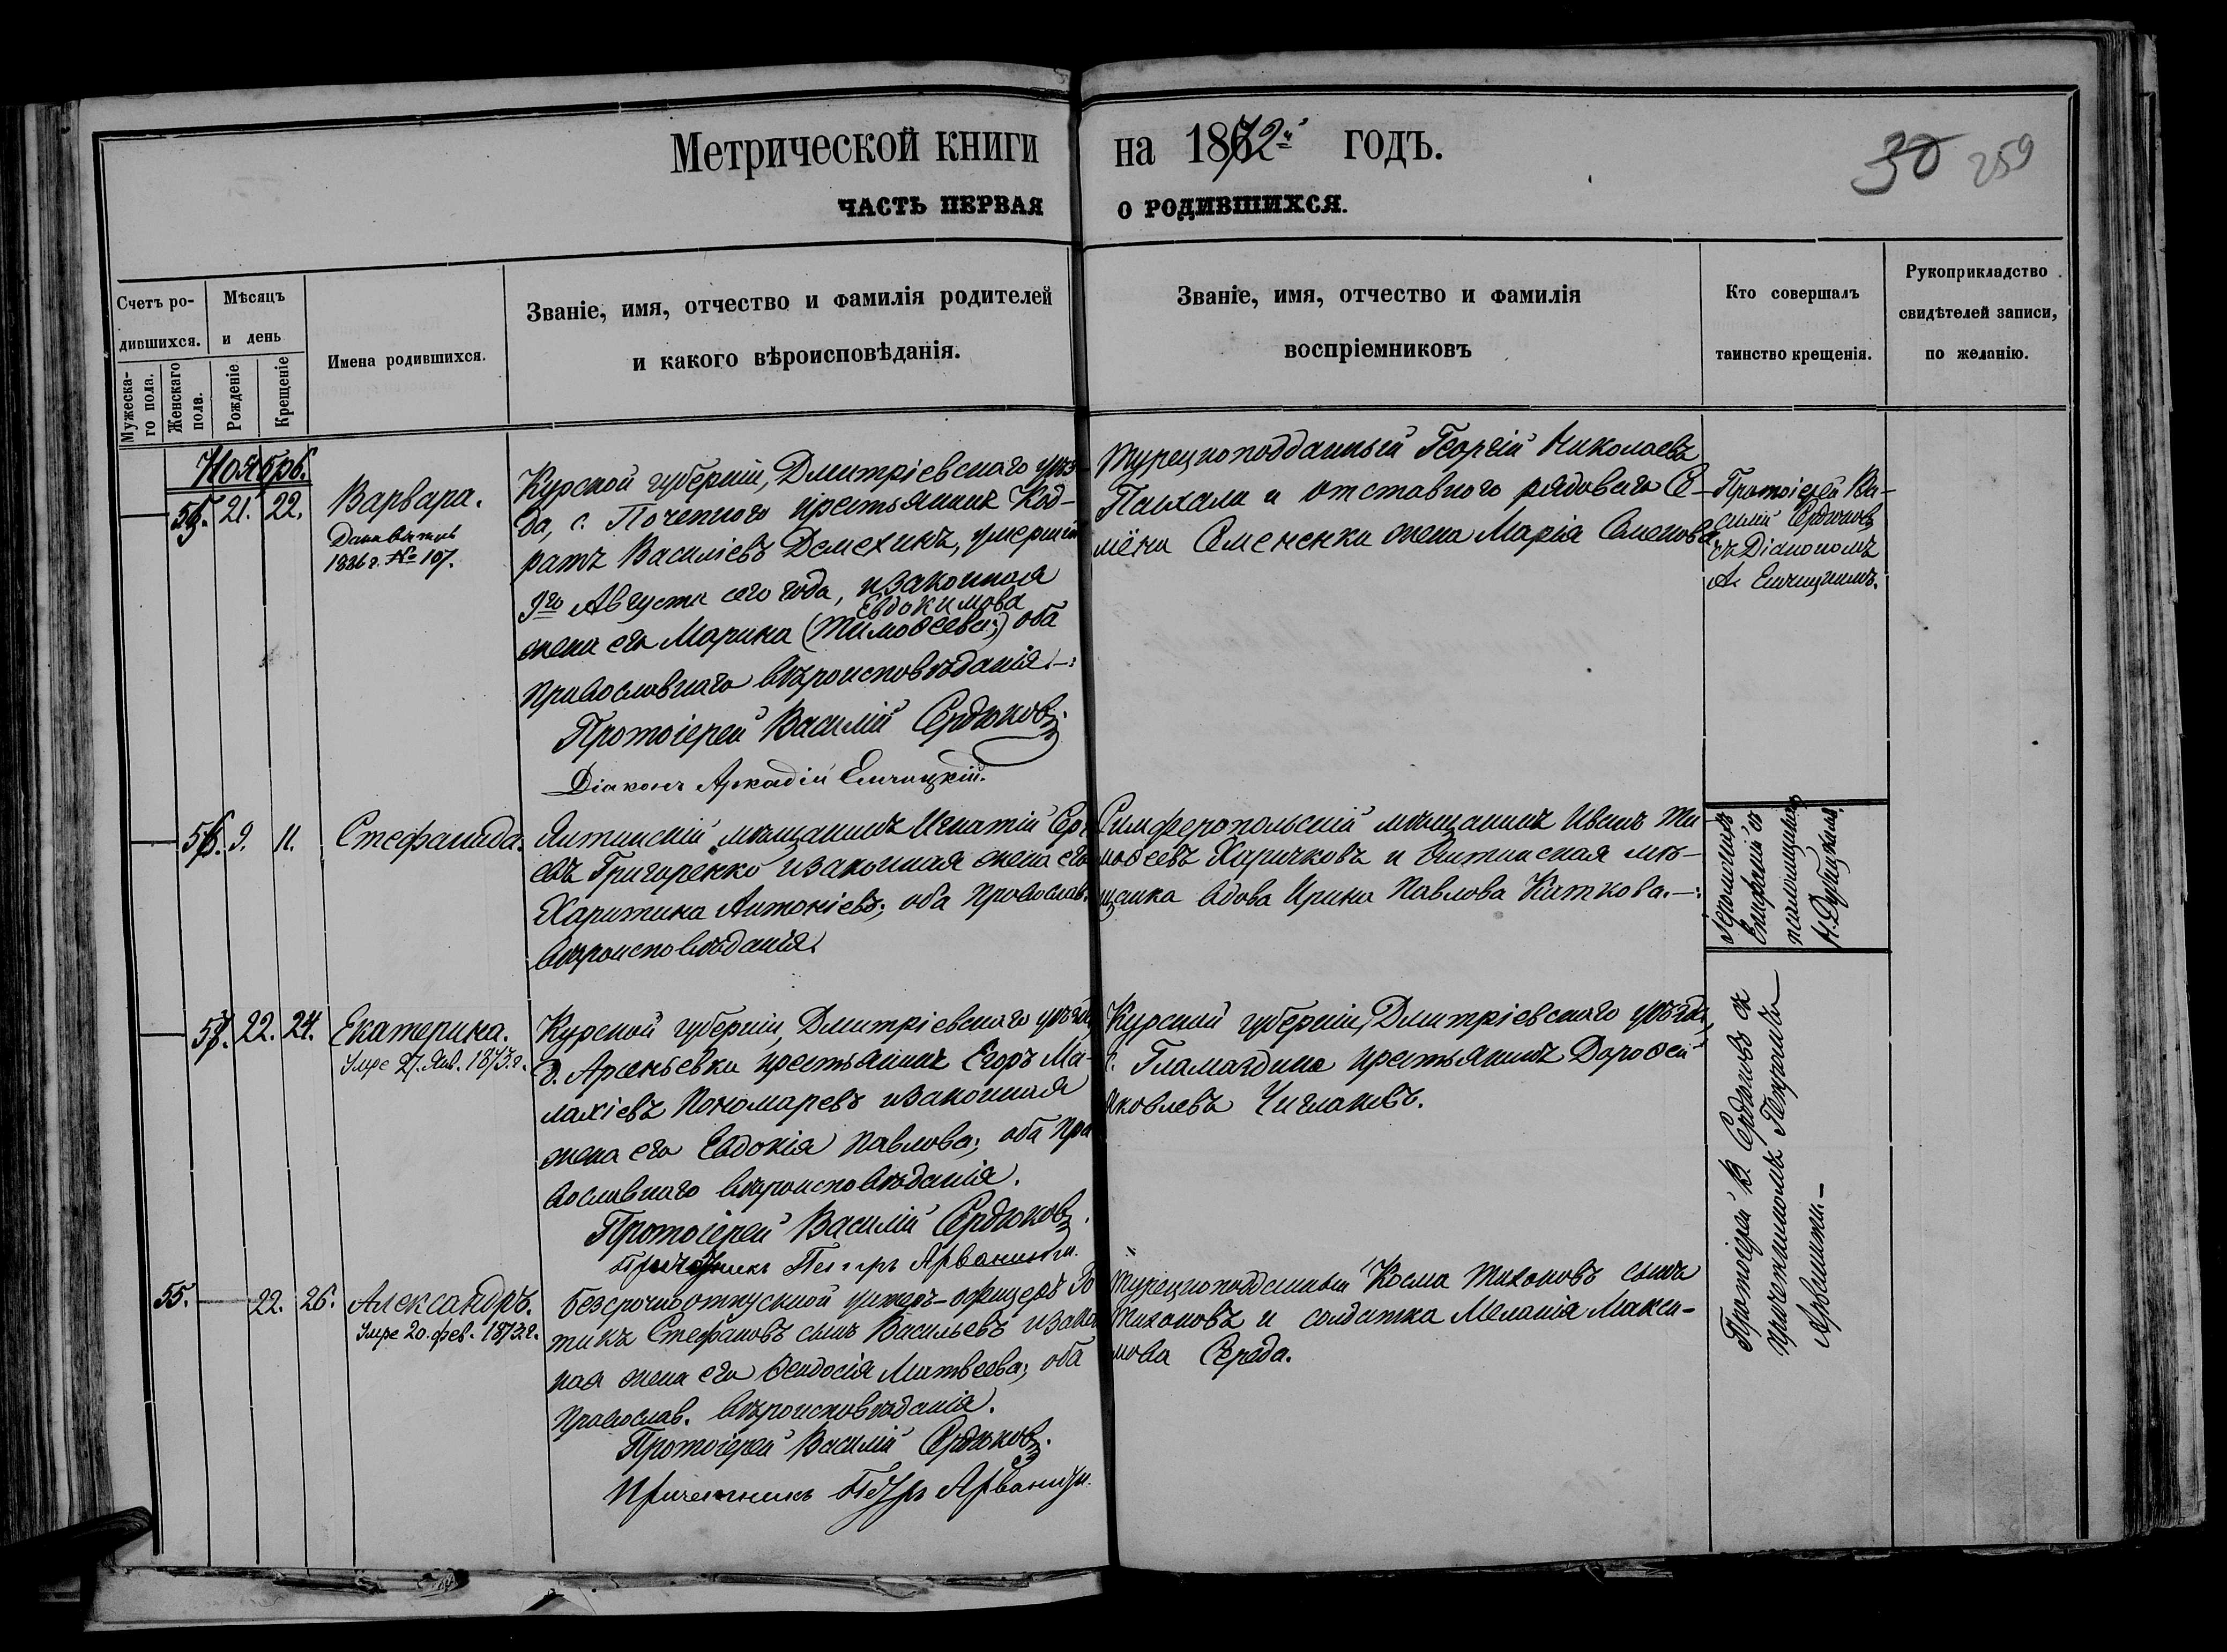 Метрической книги на 1872й годъ.
30 259
ЧАСТЬ ПЕРВАЯ О РОДИВШИХСЯ.
Счетъ ро-
дившихся.
Мужеска-
го пола.
Женскаго
пола.
Мѣсяцъ
и день
Рожденіе
Крещеніе
Имена родившихся.
Званіе, имя, отчество и фамилія родителей
и какого вѣроисповѣданія.
Званіе, имя, отчество и фамилія
воспріемниковъ
Кто совершалъ
таинство крещенія.
Рукоприкладство
свидѣтелей записи,
по желанію.
Ноябрь.
21. 22.
Варвара.
1886 г. № 107.
Курской губерніи, Дмитріевскаго уѣз-
да, с. Почепного крестьянинъ Код-
ратъ Василіевъ Демехинъ, умершій
9го Августа сего года, и законная
Евдокимова
жена его Марина (Тимоѳеева;) оба
православнаго вѣроисповѣданія.—:
Протоіерей Василій Сердюковъ.
Діаконъ Аркадій Емчицкій.
Турецкоподданный Георгій Николаевъ
Пасхали и отставного рядоваго Се-
мёна Семененки жена Марія Семенова.
Протоіерей Ва-
силій Сердюковъ
съ Діакономъ
А. Емчицкимъ.
9. 11.
Стефанида.
Ялтинскій мѣщанинъ Игнатій Сер-
евъ Григоренко и законная жена его
Харитина Антоніева; оба православ.
вѣроисповѣданія.
Симферопольскій мѣщанинъ Иванъ Ти-
моѳеевъ Харичковъ и Ялтинская мѣ-
щанка вдова Ирина Павлова Каткова.—:
Іеромонахъ
Епифаній съ
22. 24.
Екатерина.
Умре 27. Янв. 1873. г.
Курской губерніи, Дмитріевскаго уѣзда
д. Арсеньевки крестьянинъ Егоръ Ма-
лахіевъ Пономаревъ и законная
жена его Евдокія Павлова; оба пра-
вославнаго вѣроисповѣданія.
Протоіерей Василій Сердюковъ.
Причетникъ Петръ Арванити.
Курской губерніи, Дмитріевскаго уѣзда,
с. Гламаздина крестьянинъ Дороѳей
Яковлевъ Чиглаковъ.
Протоіерей В. Сердюковъ съ
причетникомъ Петромъ
Арванити.—
55. 22. 26.
Александръ.
Умре 20. фев. 1873. г.
Безсрочноотпускной унтеръ-офицеръ
Стефановъ сынъ Васильевъ и закон
ная жена его Ѳеодосія Матвеева; оба
православ. вѣроисповѣданія.
Протоіерей Василій Сердюковъ.
Причетникъ Петръ Арванити.
Турецкоподданный Косма Тихоновъ сынъ
Тихоновъ и солдатка Меланія Макси-
мова Середа.